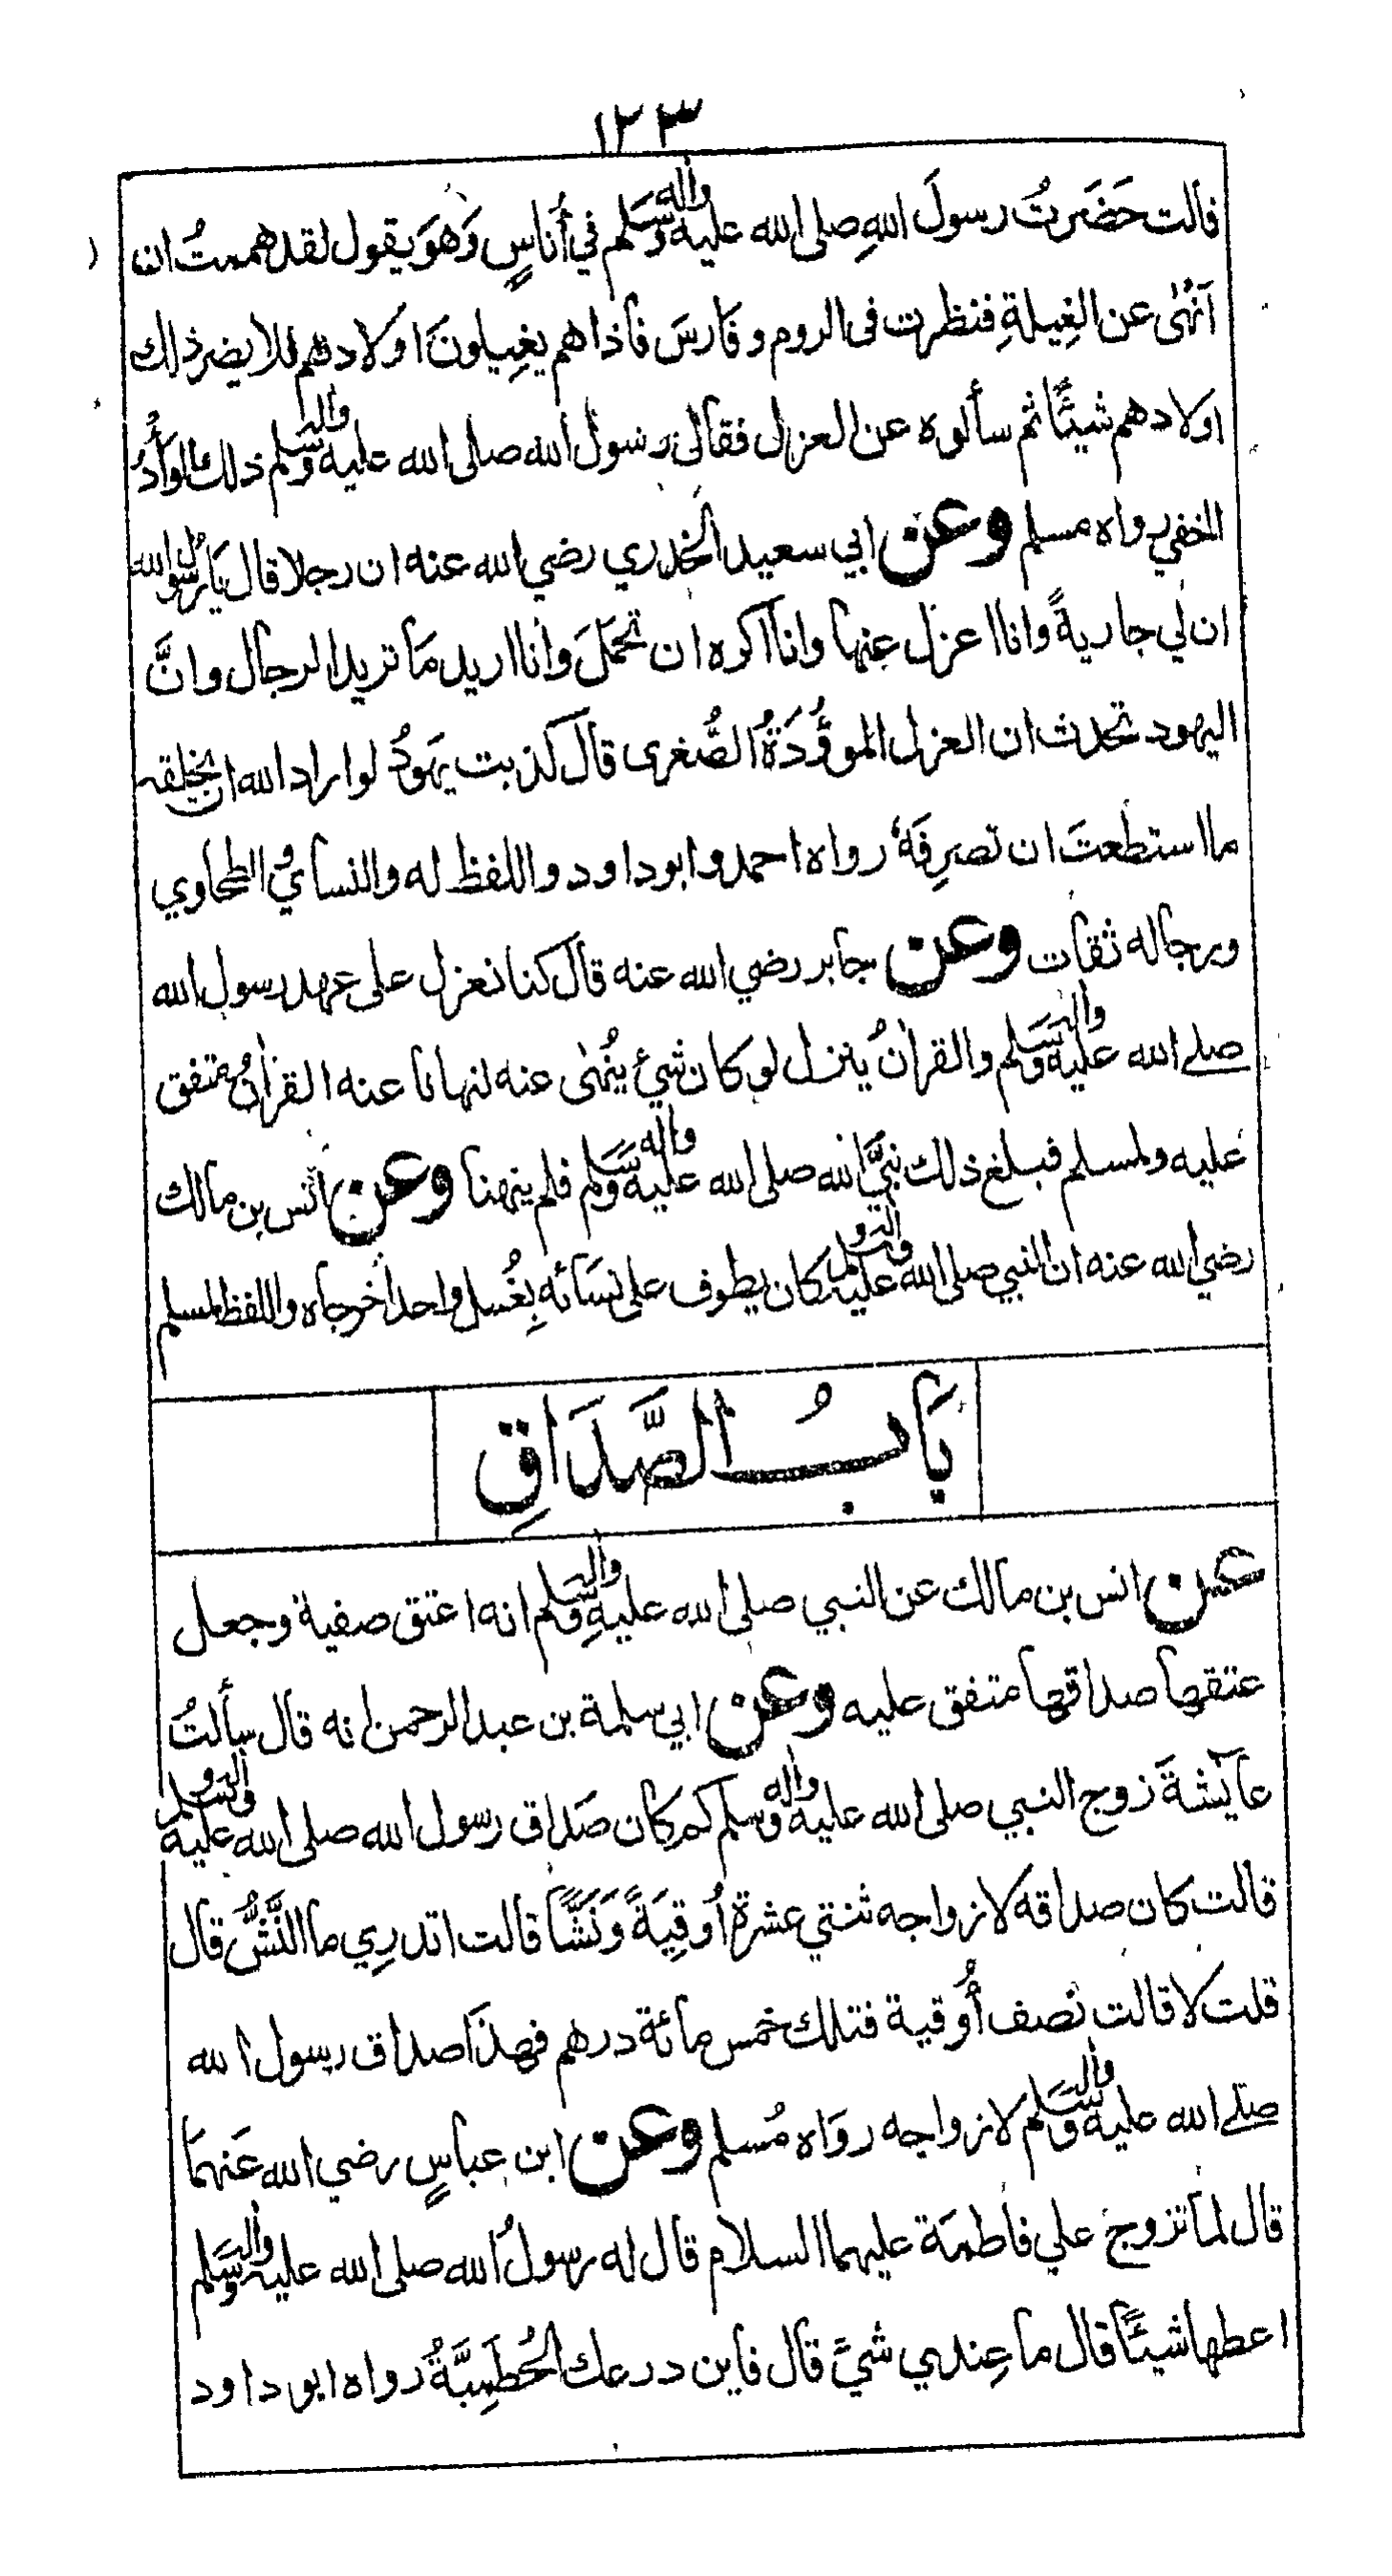 ١٢٣
قالت حَضَرتُ رسولَ اللهِ صلى الله عليه واله وَسَلم في أُناسٍ وَهوَ يقول لقد هممتُ ان
اَنهٰى عن الغِيلةِ فنظرت فى الروم و فَارسَ فاذا هم يغِيلونَ اولادهم فلا يضر ذلك
اولادهم شيئًا ثم سألوه عن العزل فقال رسول الله صلى الله عليه واله وسلم ذلك الوَأدُ
الخفي رواه مسلم وعن ابي سعيد الخدري رضي الله عنه ان رجلا قال يَا رسُول الله
ان لي جاريةً وانا اعزل عنها وانا اكره ان تحمَلَ وانا اريد مَا تريد الرجال وانَّ
اليهود تحدث ان العزل الموؤُدَةُ الصُّغرى قال كذبت يَهودُ لو اراد الله ان يخلقه
ما استطعتَ ان تصرِفَهُ رواه احمد وابو داود واللفظ له والنسائي والطحاوي
ورجاله ثقات وعن جابر رضي الله عنه قال كنا نعزل على عهد رسول الله
صلے الله عليه واله وَسَلم والقراٰنُ ينزل لو كان شيءٌ يُنهٰى عنه لنهانا عنه القراٰنُ متفق
عليه ولمسلم فبلغ ذلك نبيَّ الله صلى الله عليه واله وَسَلم فلم ينهنا وعن انس بن مالك
رضي الله عنه ان النبي صلى الله عليه واله وسلم كان يطوف على نسَائه بِغُسل واحد اخرجاه واللفظ لمسلم
بَابُ الصَّدَاقِ
عن انس بن مالك عن النبي صلى الله عليهِ واله وسلم انه اعتق صفية وجعل
عتقها صداقها متفق عليه وعن ابي سلمة بن عبد الرحمن انه قال سألتُ
عايشةَ زوج النبي صلى الله عليه واله وسلم كم كان صَداق رسول الله صلى الله عليه واله وسلم
قالت كان صداقه لازواجه ثنتي عشرة أُوقِيَةً وَنَشًّا قالت اتدرِي ما النَّشُّ قال
قلت لا قالت نصف أُوقية فتلك خمس مائة درهم فهذا صداق رسول الله
صلے الله عليه واله وَسَلم لازواجه روَاه مُسلم وعن ابن عباسٍ رضي الله عَنهمَا
قال لما تزوج علي فاطمَة عليهما السلام قال له رسولُ الله صلى الله عليه واله وَسَلم
اعطها شيئًا قال ما عِندي شيءٌ قال فاين درعك الحُطَمِيَّةُ رواه ابو داود